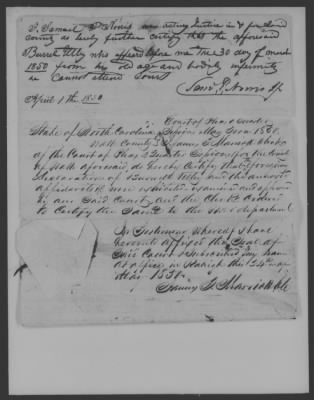 I, Samuel P. Norris now acting Justice in & for said
county do hereby further certify that the aforesaid
Burrel Utly who appeared before me the 30 day of march
1850 from his old age and bodily infirmity
is cannot attend Court
Saml P. Norris Jp
April 1th 1850
Court of Pleas & Quarter
State of North Carolina Sessions May Term 1850.
Wake County I James T. Marriott Clerk
of the Court of Pleas & Quarter Sessions for the County
of Wake aforesaid do hereby Certify that the foregoing
Declaration of Burwell Utley and the annexed
affidavits were exhibited examined and approved
by our said County and the Clerk ordered
to Certify the Same to the war department
In Testimony whereof I have
hereunto affixed the Seal of
said Court & subscribed my name
at office in Raleigh this 24th
May 1850.
James T. Marriott Clk